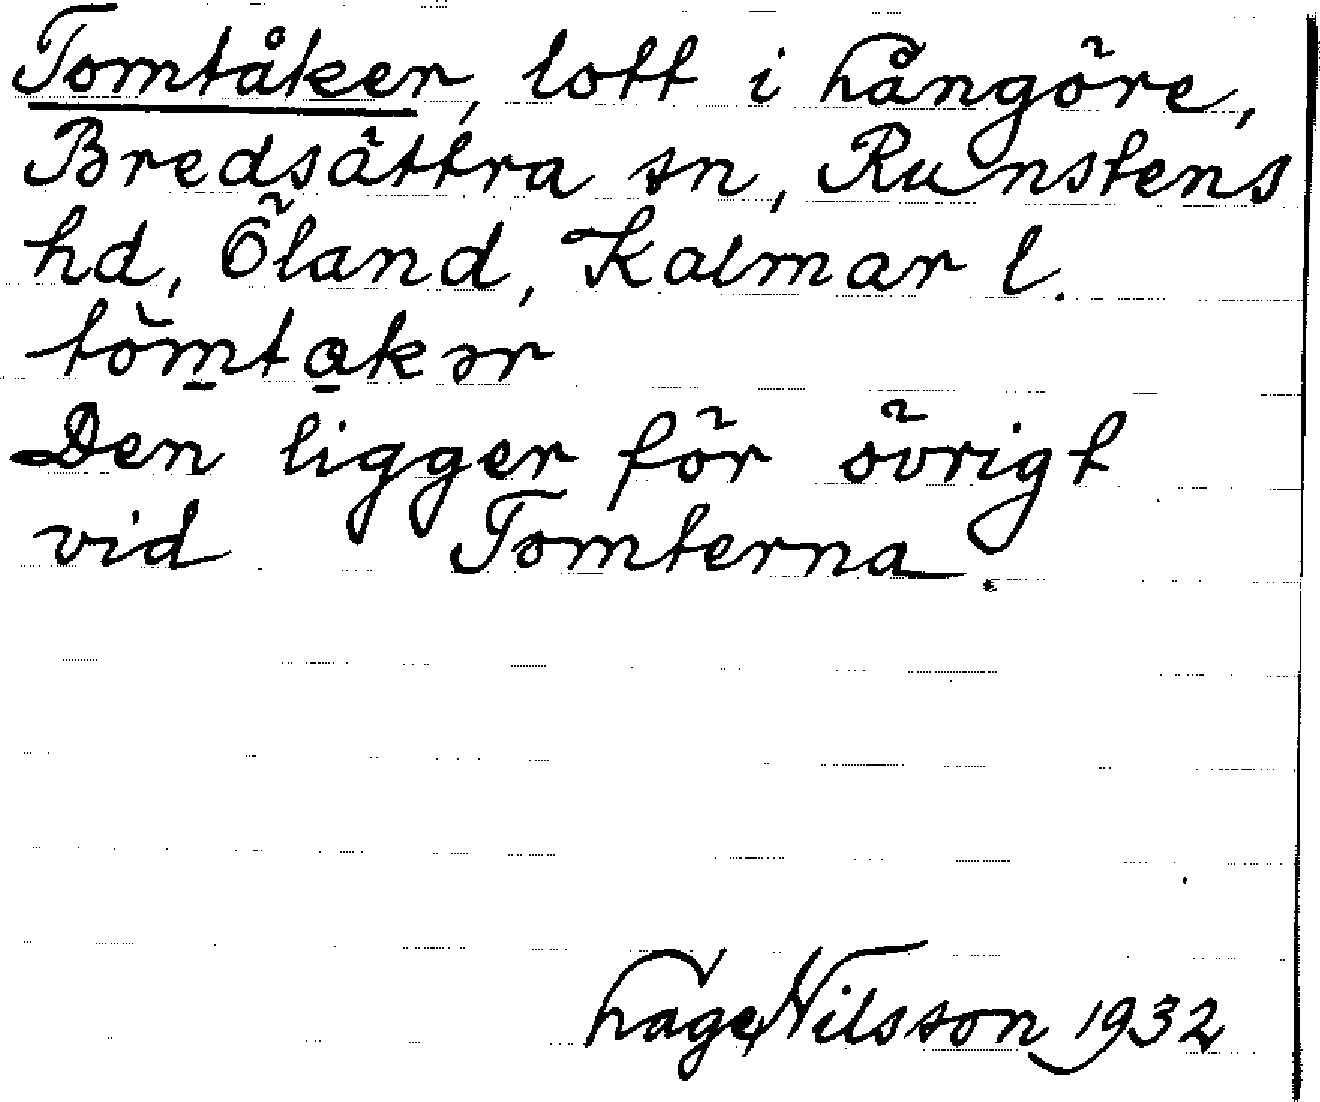 Tomtåker, lott i Långöre,
Bredsättra sn, Runstens
hd, Öland, Kalmar l.
tòm̲ta̲kər
Den ligger för övrigt
vid Tomterna.
Lage Nilsson 1932